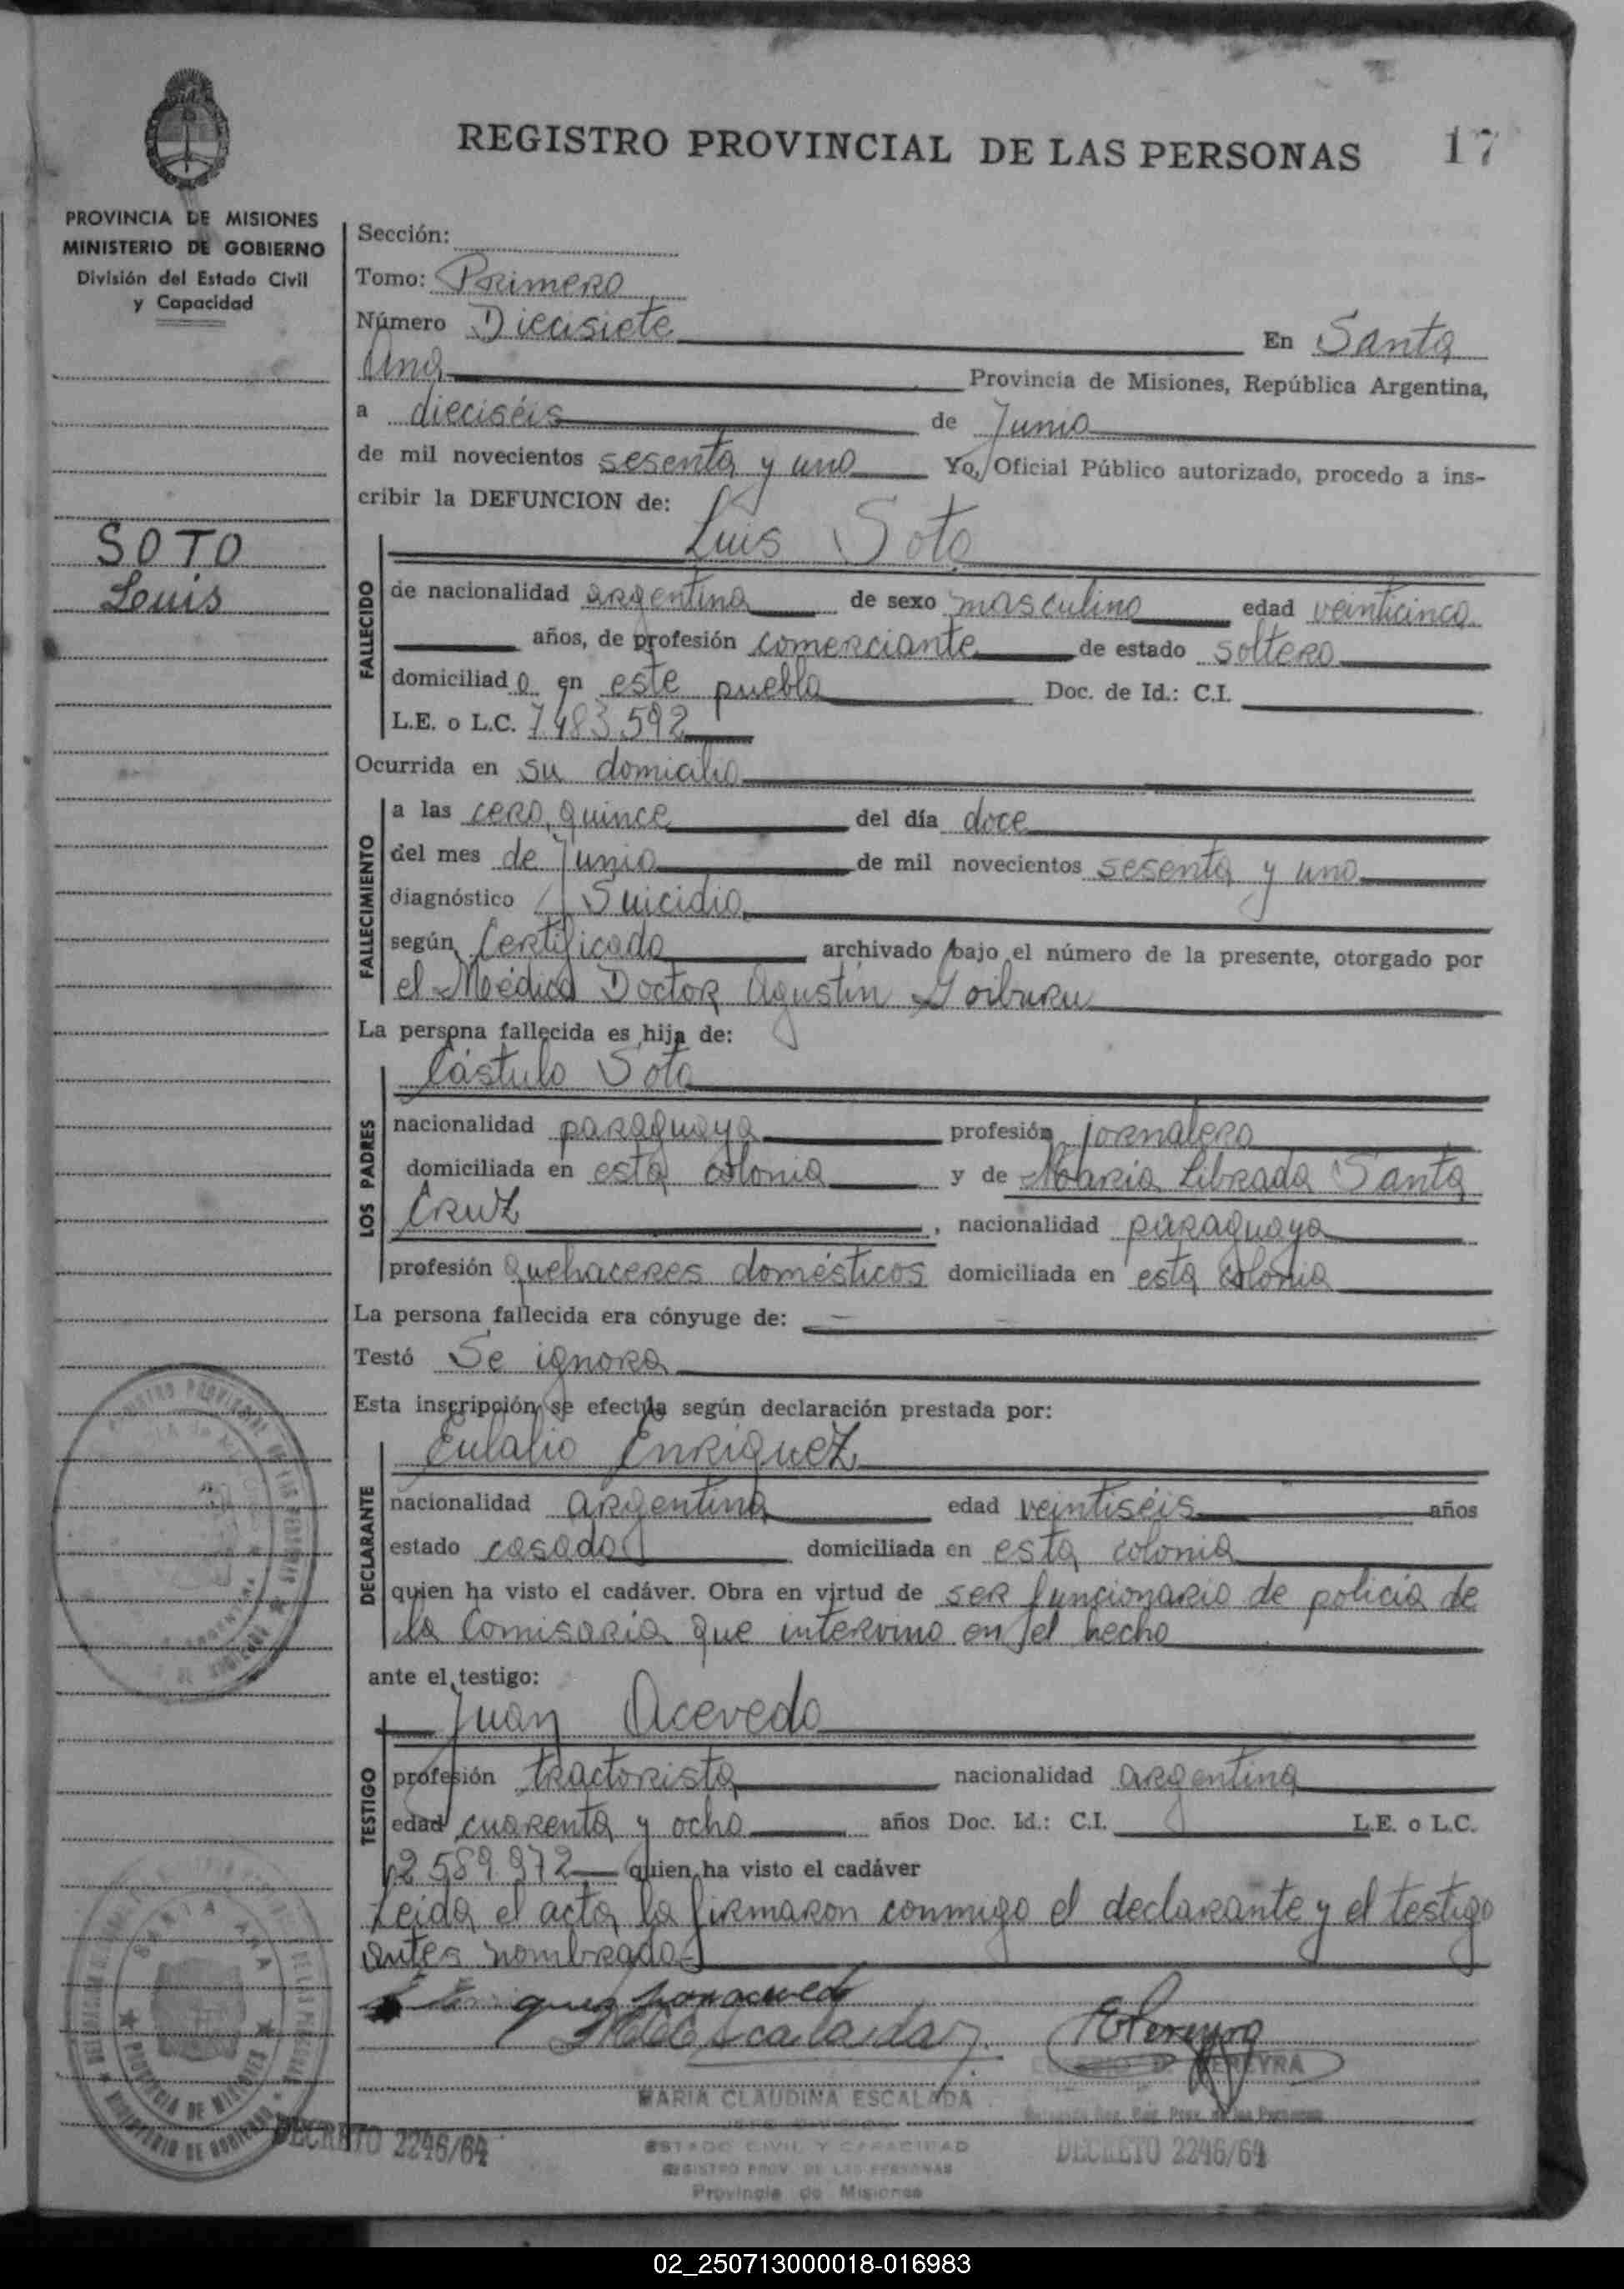 REGISTRO PROVINCIAL DE LAS PERSONAS 17
PROVINCIA DE MISIONES
MINISTERIO DE GOBIERNO
División del Estado Civil
y Capacidad
SOTO
Louis
Sección:
Tomo: Primero
Número Diecisiete En Santa
Ana Provincia de Misiones, República Argentina,
a dieciséis de Junio
de mil novecientos sesenta y uno Yo, Oficial Público autorizado, procedo a ins-
cribir la DEFUNCION de:
Luis Soto
FALLECIDO
de nacionalidad argentina de sexo masculino edad veinticinco
años, de profesión comerciante de estado soltero
domiciliado en este pueblo Doc. de Id.: C.I.
L.E. o L.C. 7.483.592
Ocurrida en su domicilio
FALLECIMIENTO
a las cero, quince del día doce
del mes de Junio de mil novecientos sesenta y uno
diagnóstico Suicidio
según Certificado archivado bajo el número de la presente, otorgado por
el Médico Doctor Agustín Goiburu
La persona fallecida es hija de:
LOS PADRES
Cástulo Soto
nacionalidad paraguaya profesión jornalero
domiciliada en esta colonia y de María Librada Santa
Cruz, nacionalidad paraguaya
profesión Quehaceres domésticos domiciliada en esta colonia
La persona fallecida era cónyuge de: —
Testó Se ignora
Esta inscripción se efectúa según declaración prestada por:
DECLARANTE
Eulalio Enriquez
nacionalidad argentina edad veintiséis años
estado casado domiciliada en esta colonia
quien ha visto el cadáver. Obra en virtud de ser funcionario de policía de
la Comisaría que intervino en el hecho
ante el testigo:
TESTIGO
Juan Acevedo
profesión tractorista nacionalidad argentina
edad cuarenta y ocho años Doc. Id.: C.I. L.E. o L.C.
2.589.972 quien ha visto el cadáver
Leida el acta, la firmaron conmigo el declarante y el testigo
antes nombrado
MARIA CLAUDINA ESCALADA
ESTADO CIVIL Y CAPACIDAD
REGISTRO PROV. DE LAS PERSONAS
Provincia de Misiones
PEREYRA
DECRETO 2246/64
DECRETO 2246/64
SANTA ANA
PROVINCIA DE MISIONES
MINISTERIO DE GOBIERNO
02_250713000018-016983